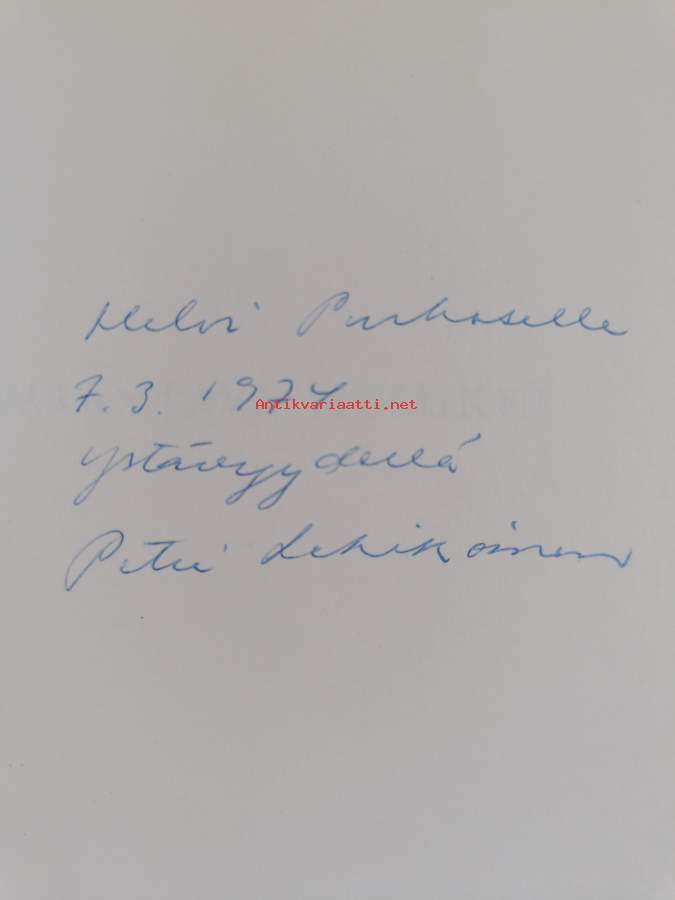 Helvi Purhoselle
7.3. 1974
Antikvariaatti.net
ystävyydellä
Petri Lehikoinen